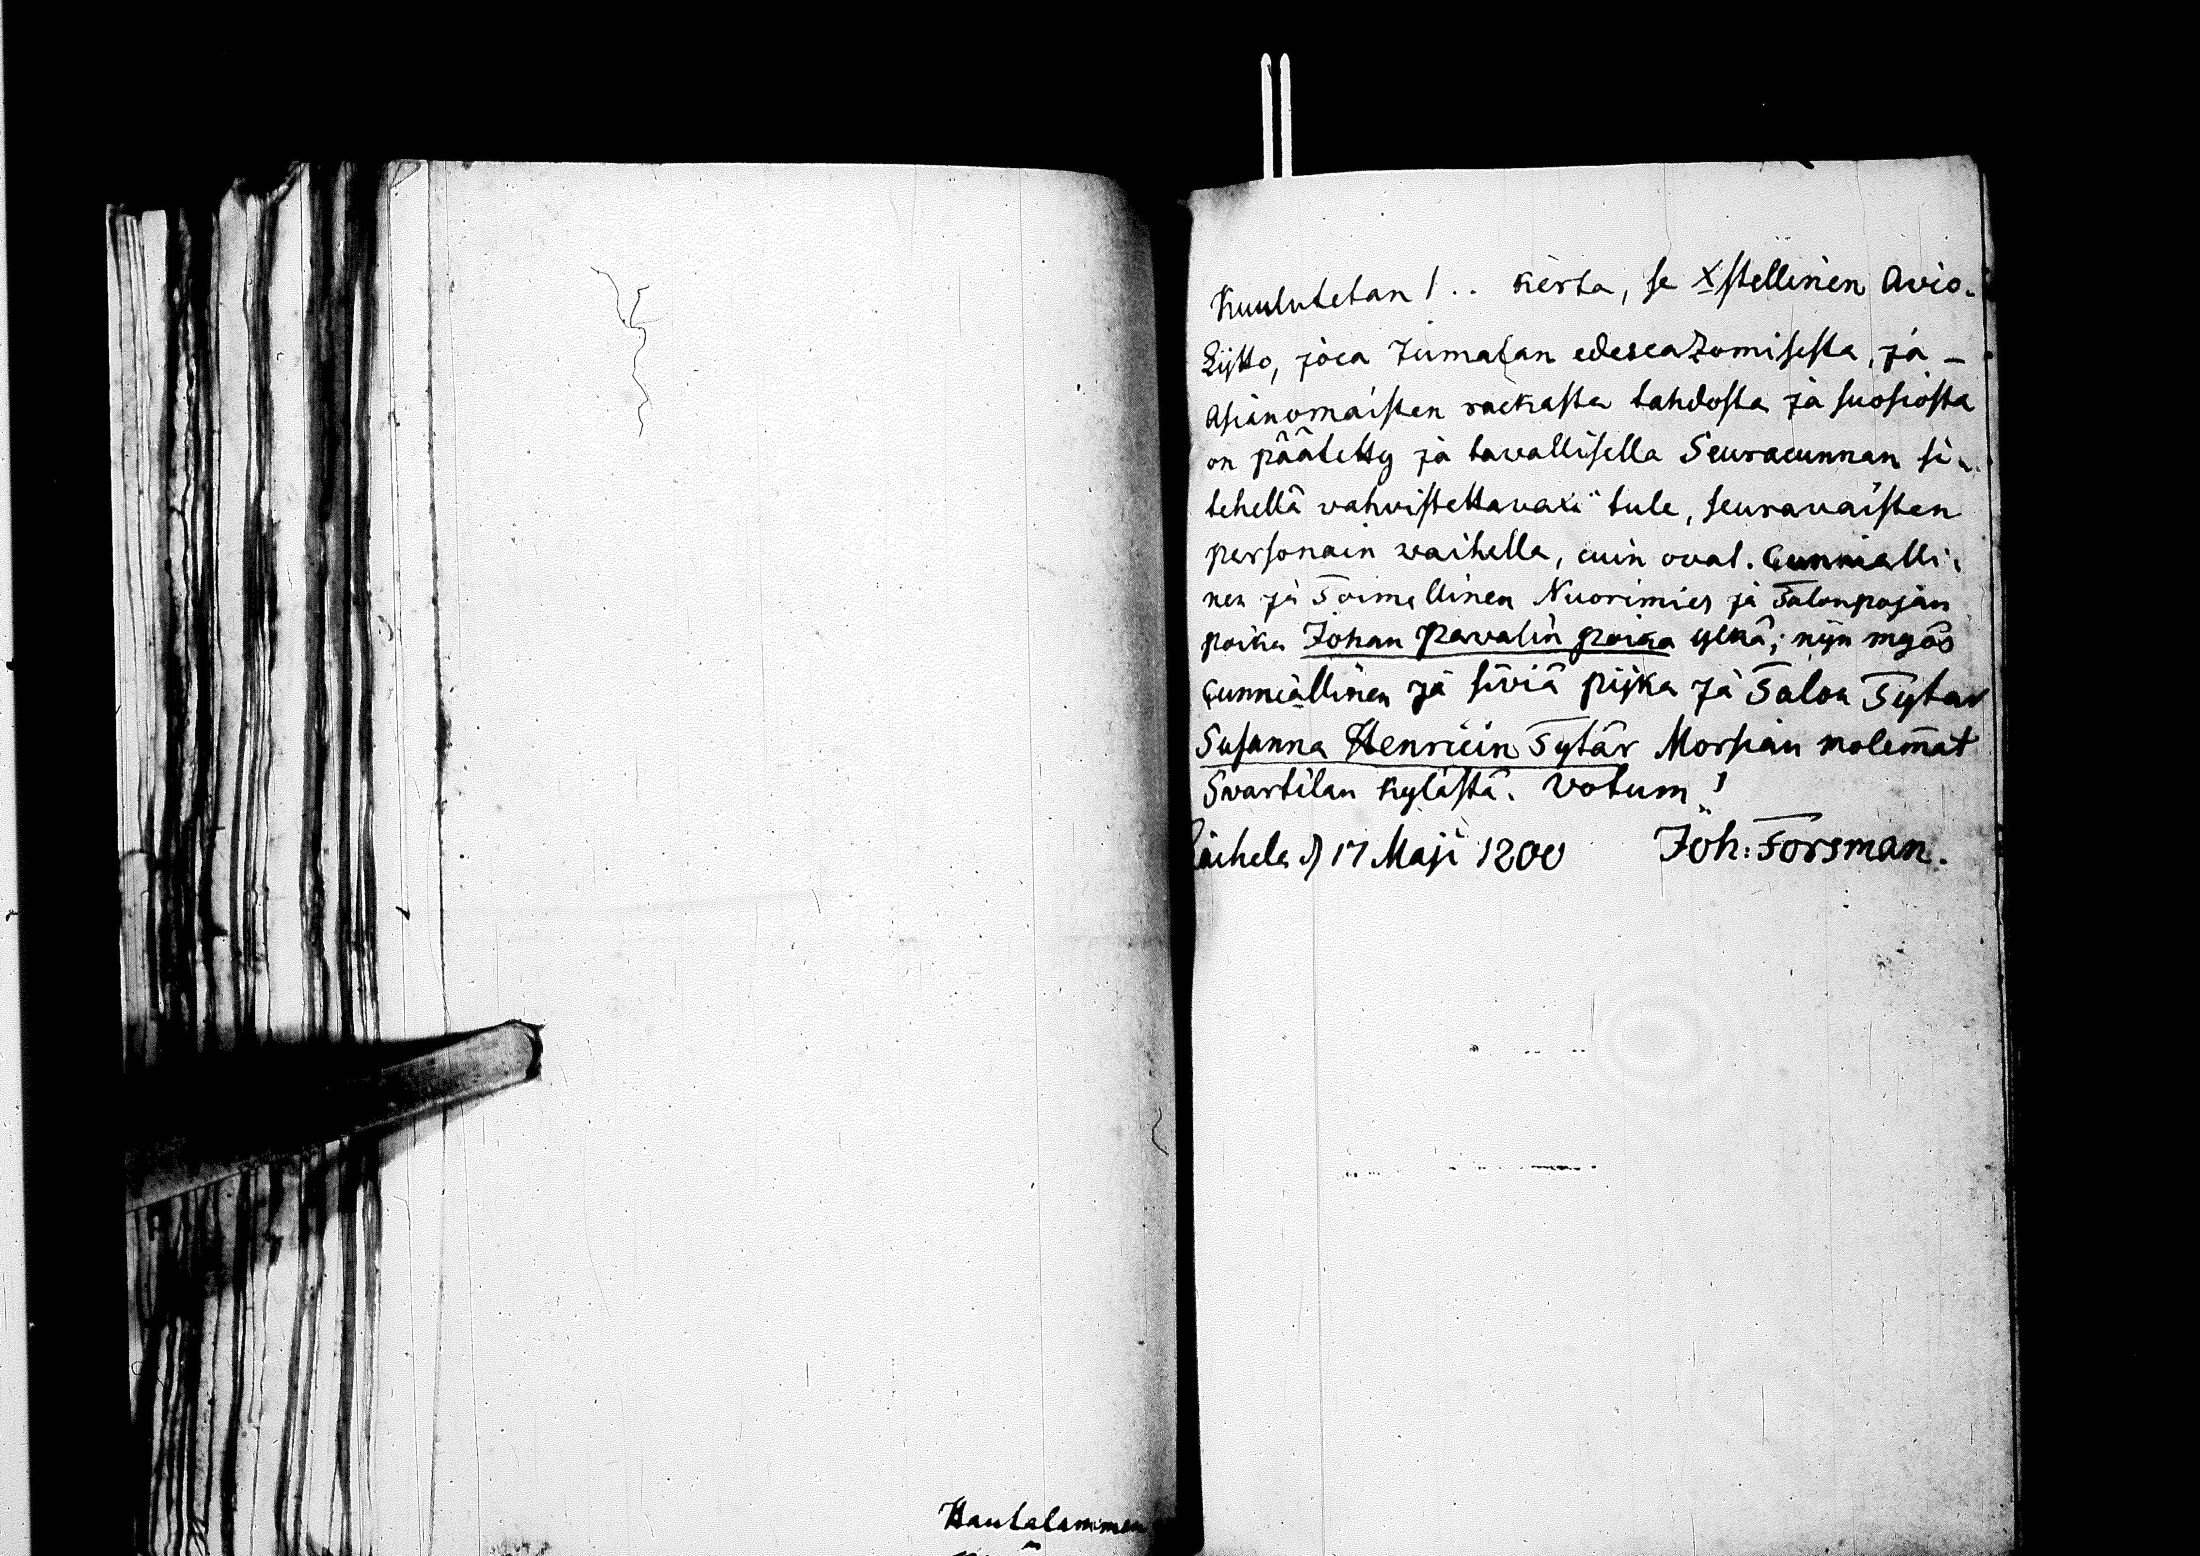 Kuulutetan 1.. kerta, se Xstellinen Avio-
Lijtto, joca Jumalan edescatzomisesta, ja -
Asianomaisten rackasta tahdosta ja suosiosta
on päätetty ja tavallisella Seuracunnan si-
tehellä vahvistettavaxi tule, seuravaisten
personain waihella, cuin ovat. Cunnialli-
nen ja Toimellinen Nuorimies ja Talonpojan
poika Johan Pavalin poika ylkä; nijn myös
Cunniallinen ja siviä pijka ja Talon Tytär
Susanna Henricin Tytär Morsian molemat
Svartilan kylästä. Votum!
Laihela d 17 Maji 1800 Joh: Forsman.
Hautalammen